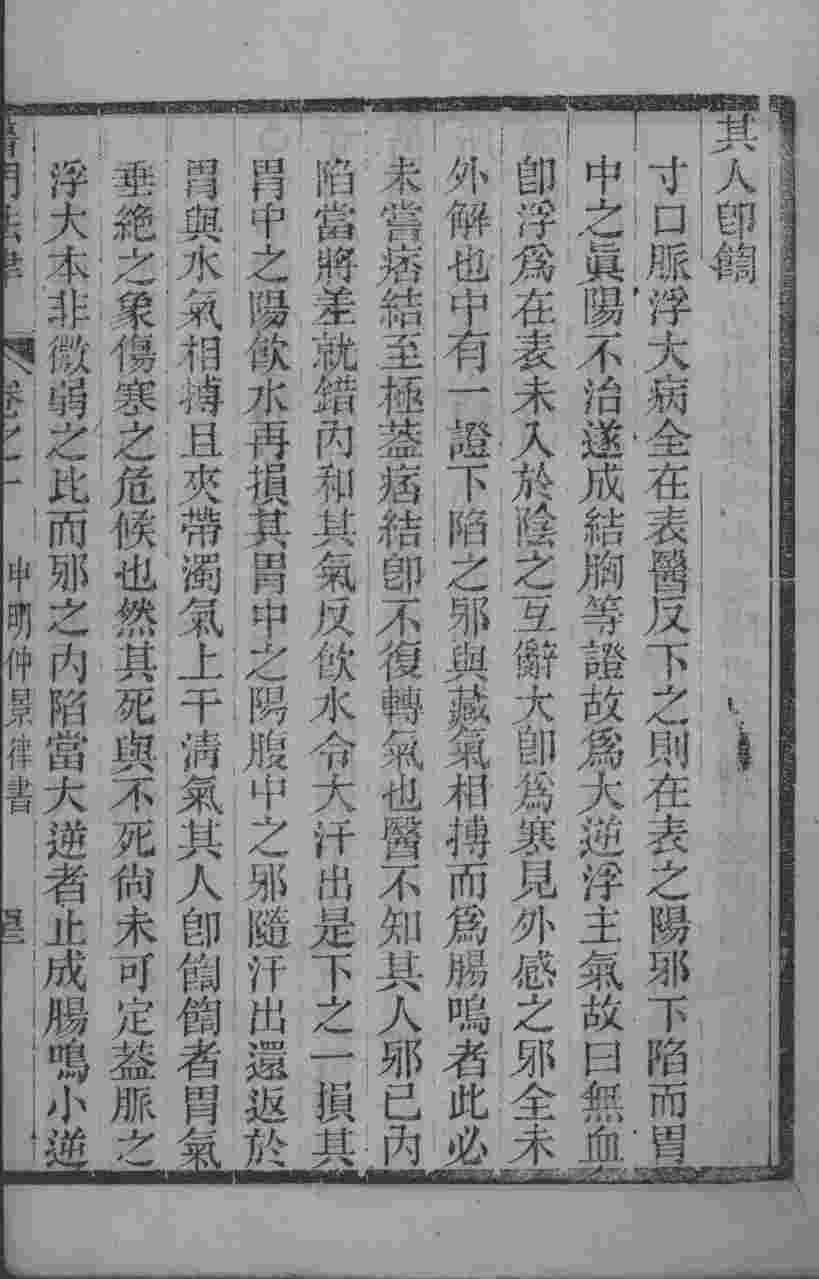 其人卽䭇
寸口脈浮大病全在表醫反下之則在表之陽邪下陷而胃
中之眞陽不治遂成結胸等證故爲大逆浮主氣故曰無血
卽浮爲在表未入於陰之互辭大卽爲寒見外感之邪全未
外解也中有一證下陷之邪與藏氣相搏而爲腸鳴者此必
未嘗痞結至極蓋痞結卽不復轉氣也醫不知其人邪已內
陷當將差就錯內和其氣反飮水令大汗出是下之一損其
胃中之陽飮水再損其胃中之陽腹中之邪隨汗出還返於
胃與水氣相搏且夾帶濁氣上干淸氣其人卽䭇䭇者胃氣
垂絶之象傷寒之危候也然其死與不死尙未可定蓋脈之
浮大本非微弱之比而邪之內陷當大逆者止成腸鳴小逆
醫門法律 卷之一 申明仲景律書